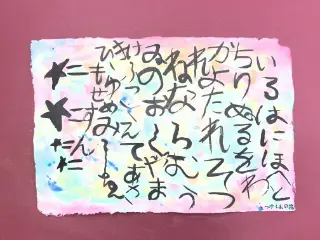 いろはにほへと
ちりぬるをわ
かよたれそつ
ねならむう
ゐのおくやま
けふこえてあさ
きゆめみしゑ
ひもせすん